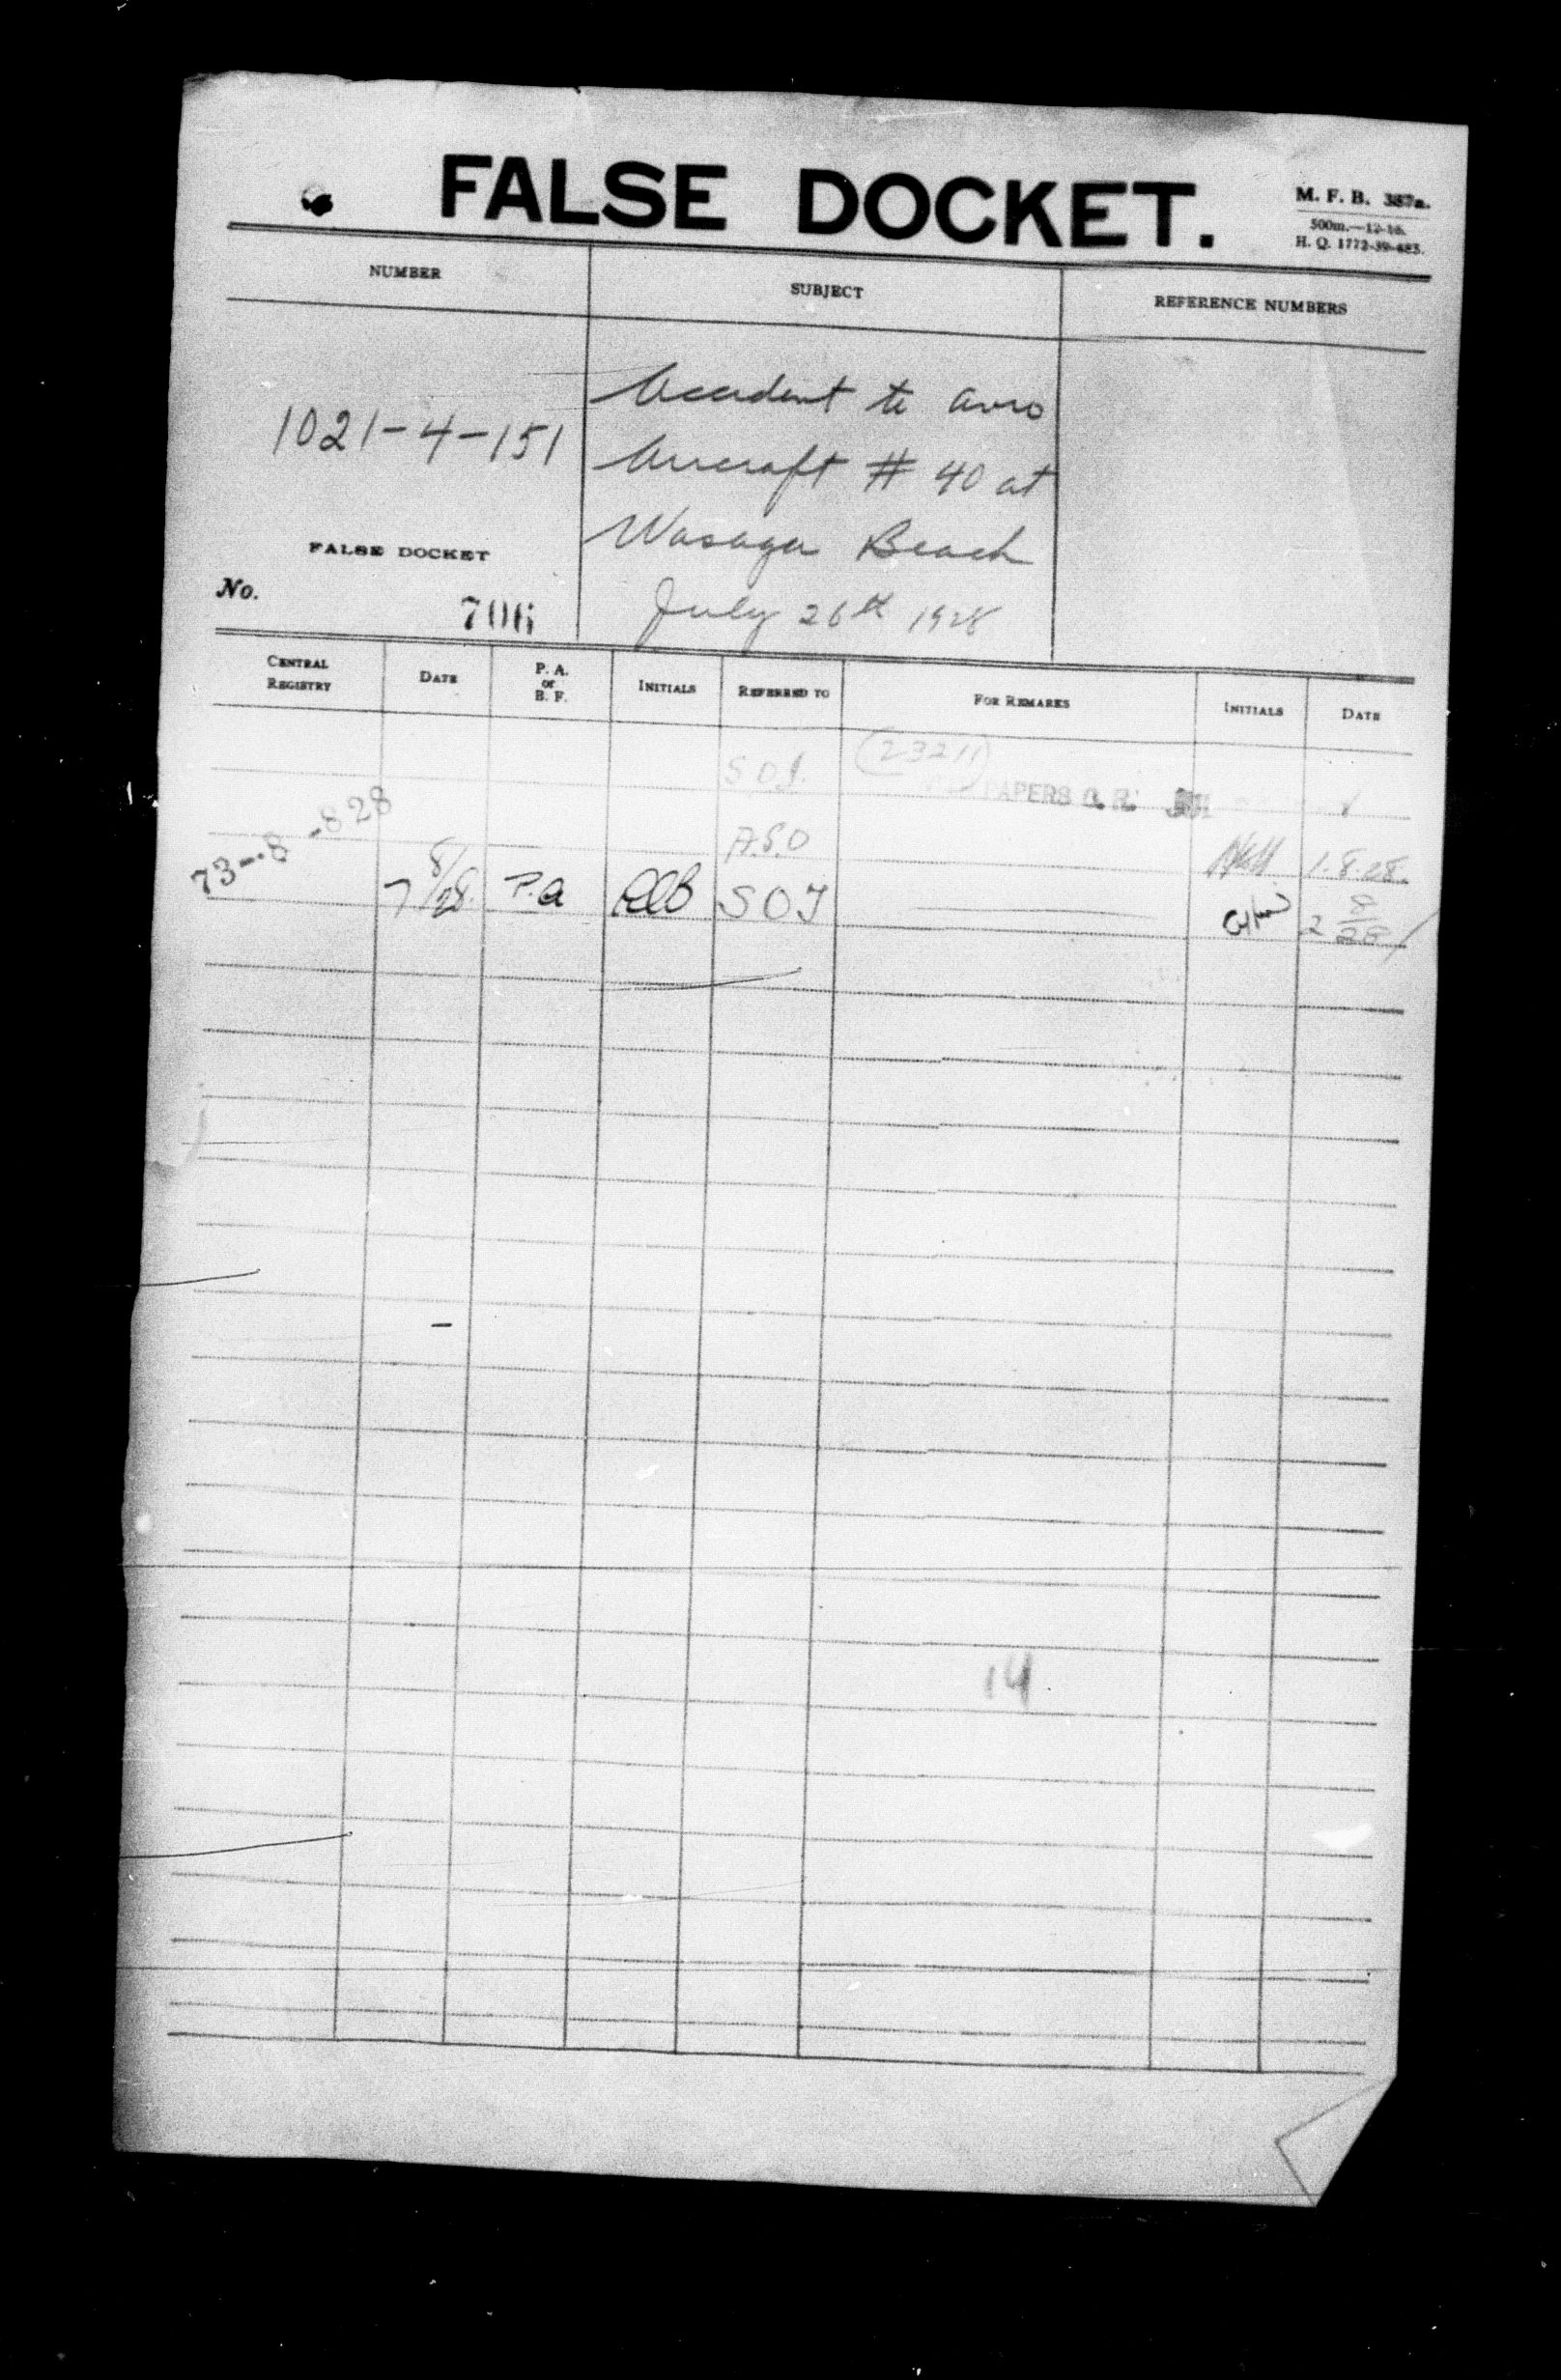 FALSE DOCKET.
M. F. B. 387a.
500m.—12-16.
H. Q. 1772-39-483.
NUMBER
SUBJECT
REFERENCE NUMBERS
1021-4-151
Accident to Avro
Aircraft # 40 at
Wasaga Beach
July 26th 1928
FALSE DOCKET
No. 706
CENTRAL REGISTRY
DATE
P. A. or B. F.
INITIALS
REFERRED TO
FOR REMARKS
INITIALS
DATE
S O I.
PAPERS
73-8-828
A.S.O
1.8.28.
7 8/28. P.A SOI
2 8/28
14